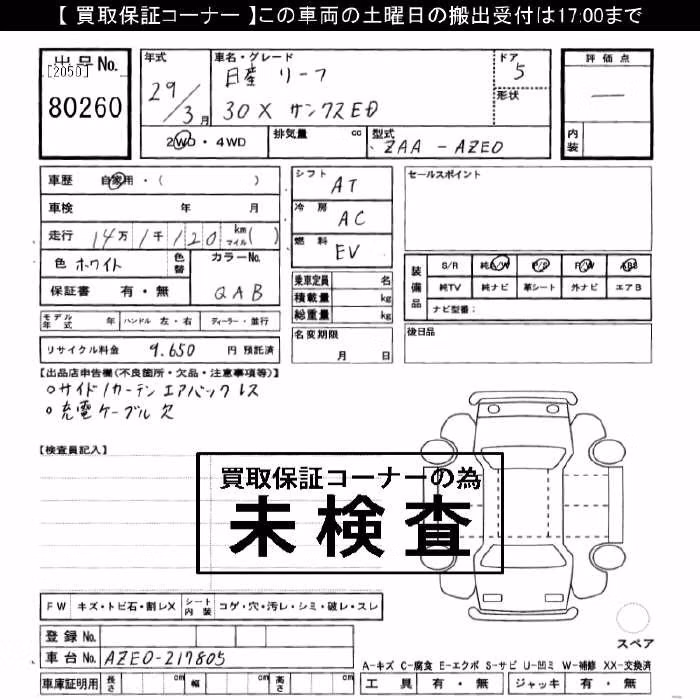 【 買取保証コーナー 】この車両の土曜日の搬出受付は17:00まで
出品No.
[2050]
80260
年式
29/3月
車名・グレード
日産 リーフ
30X サンクスED
ドア
5
形状
評価点
—
内装
2WD・4WD
排気量 cc
型式
ZAA-AZE0
車歴 自家用・( )
車検 年 月
走行 14万1千120 km マイル( )
色 ホワイト 色替
カラーNo.
QAB
保証書 有・無
シフト
AT
冷房
AC
燃料
EV
セールスポイント
装備品
S/R 純A/W P/S P/W ABS
純TV 純ナビ 革シート 外ナビ エアB
ナビ型番:
乗車定員 名
積載量 kg
総重量 kg
モデル年式 年 ハンドル 左・右 ディーラー・並行
名変期限
月 日
後日品
リサイクル料金 9.650 円 預託済
【出品店申告欄(不良箇所・欠品・注意事項等)】
○サイド/カーテンエアバックレス
○充電ケーブル欠
【検査員記入】
買取保証コーナーの為
未検査
FW キズ・トビ石・割レX シート内装 コゲ・穴・汚レ・シミ・破レ・スレ
登録No.
車台No. AZE0-217805
スペア
A-キズ C-腐食 E-エクボ S-サビ U-凹ミ W-補修 XX-交換済
車庫証明用 長さ cm 幅 cm 高さ cm
工具 有・無 ジャッキ 有・無